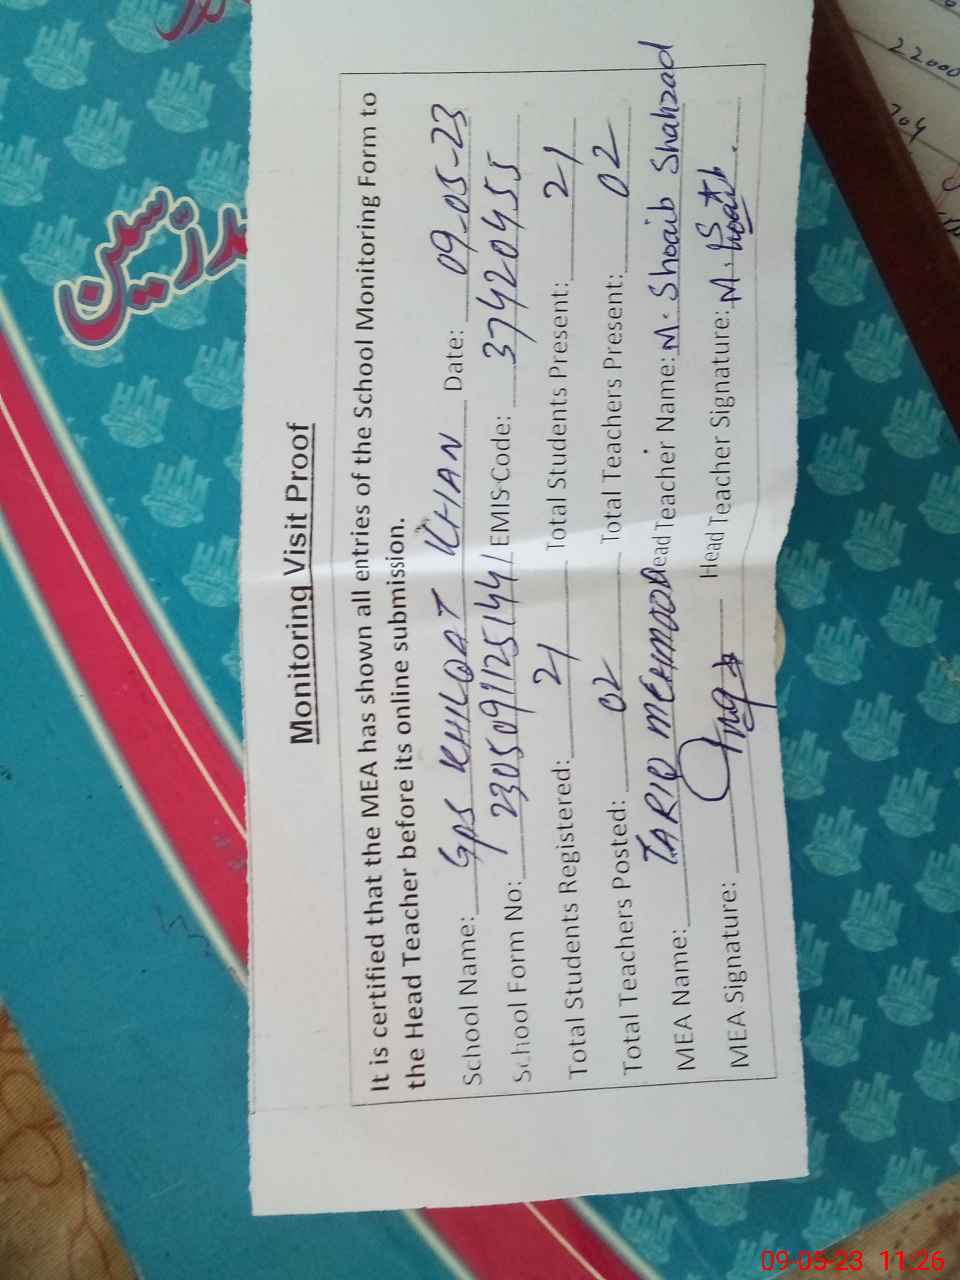 Monitoring Visit Proof
It is certified that the MEA has shown all entries of the School Monitoring Form to
the Head Teacher before its online submission.
School Name: GPS KHILQAT KHAN Date: 09-05-23
School Form No: 23050911251441 EMIS Code: 37420455
Total Students Registered: 21 Total Students Present: 21
Total Teachers Posted: 02 Total Teachers Present: 02
MEA Name: TARIQ MEHMOOD Head Teacher Name: M. Shoaib Shahzad
MEA Signature: Head Teacher Signature: M. Shoaib
22000
704
09-05-23 11:26